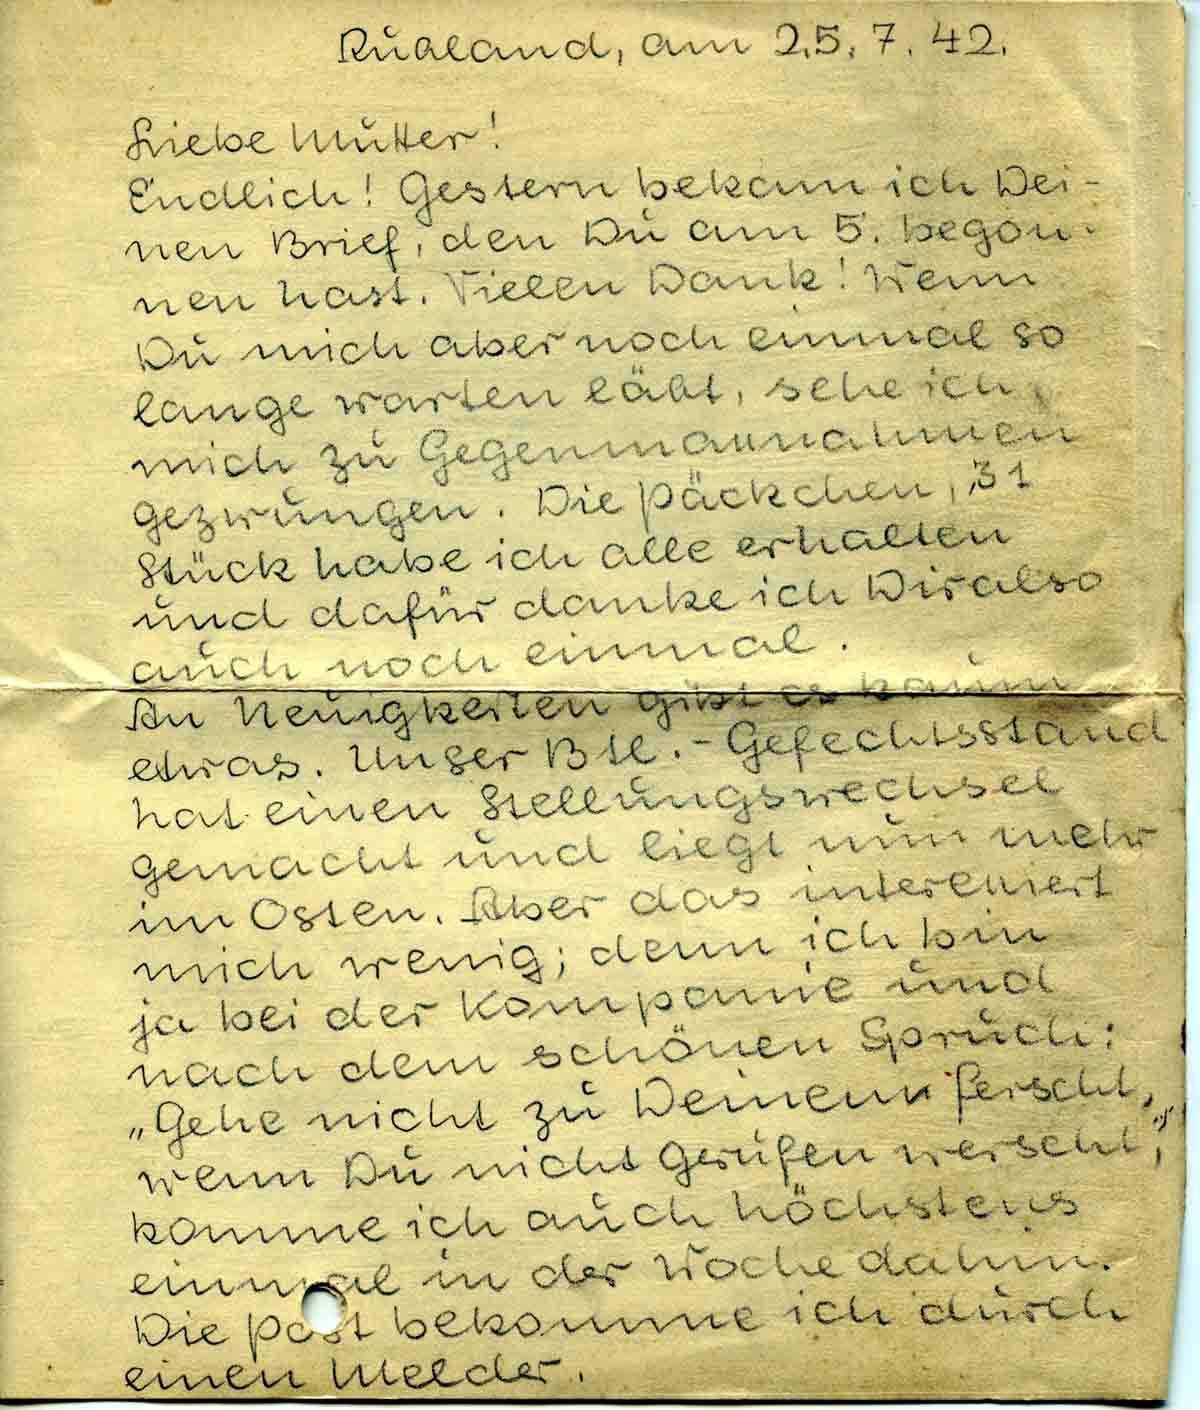 Rußland, am 25.7.42.
Liebe Mutter!
Endlich! Gestern bekam ich Dei-
nen Brief, den Du am 5. begon-
nen hast. Vielen Dank! Wenn
Du mich aber noch einmal so
lange warten läßt, sehe ich
mich zu Gegenmaßnahmen
gezwungen. Die Päckchen, 31
Stück habe ich alle erhalten
und dafür danke ich Dir also
auch noch einmal.
An Neuigkeiten gibt es kaum
etwas. Unser Btl.-Gefechtsstand
hat einen Stellungswechsel
gemacht und liegt nun mehr
im Osten. Aber das interessiert
mich wenig; denn ich bin
ja bei der Kompanie und
nach dem schönen Spruch:
„Gehe nicht zu Deinem Ferscht,
wenn Du nicht gerufen werscht",
komme ich auch höchstens
einmal in der Woche dahin.
Die Post bekomme ich durch
einen Melder.